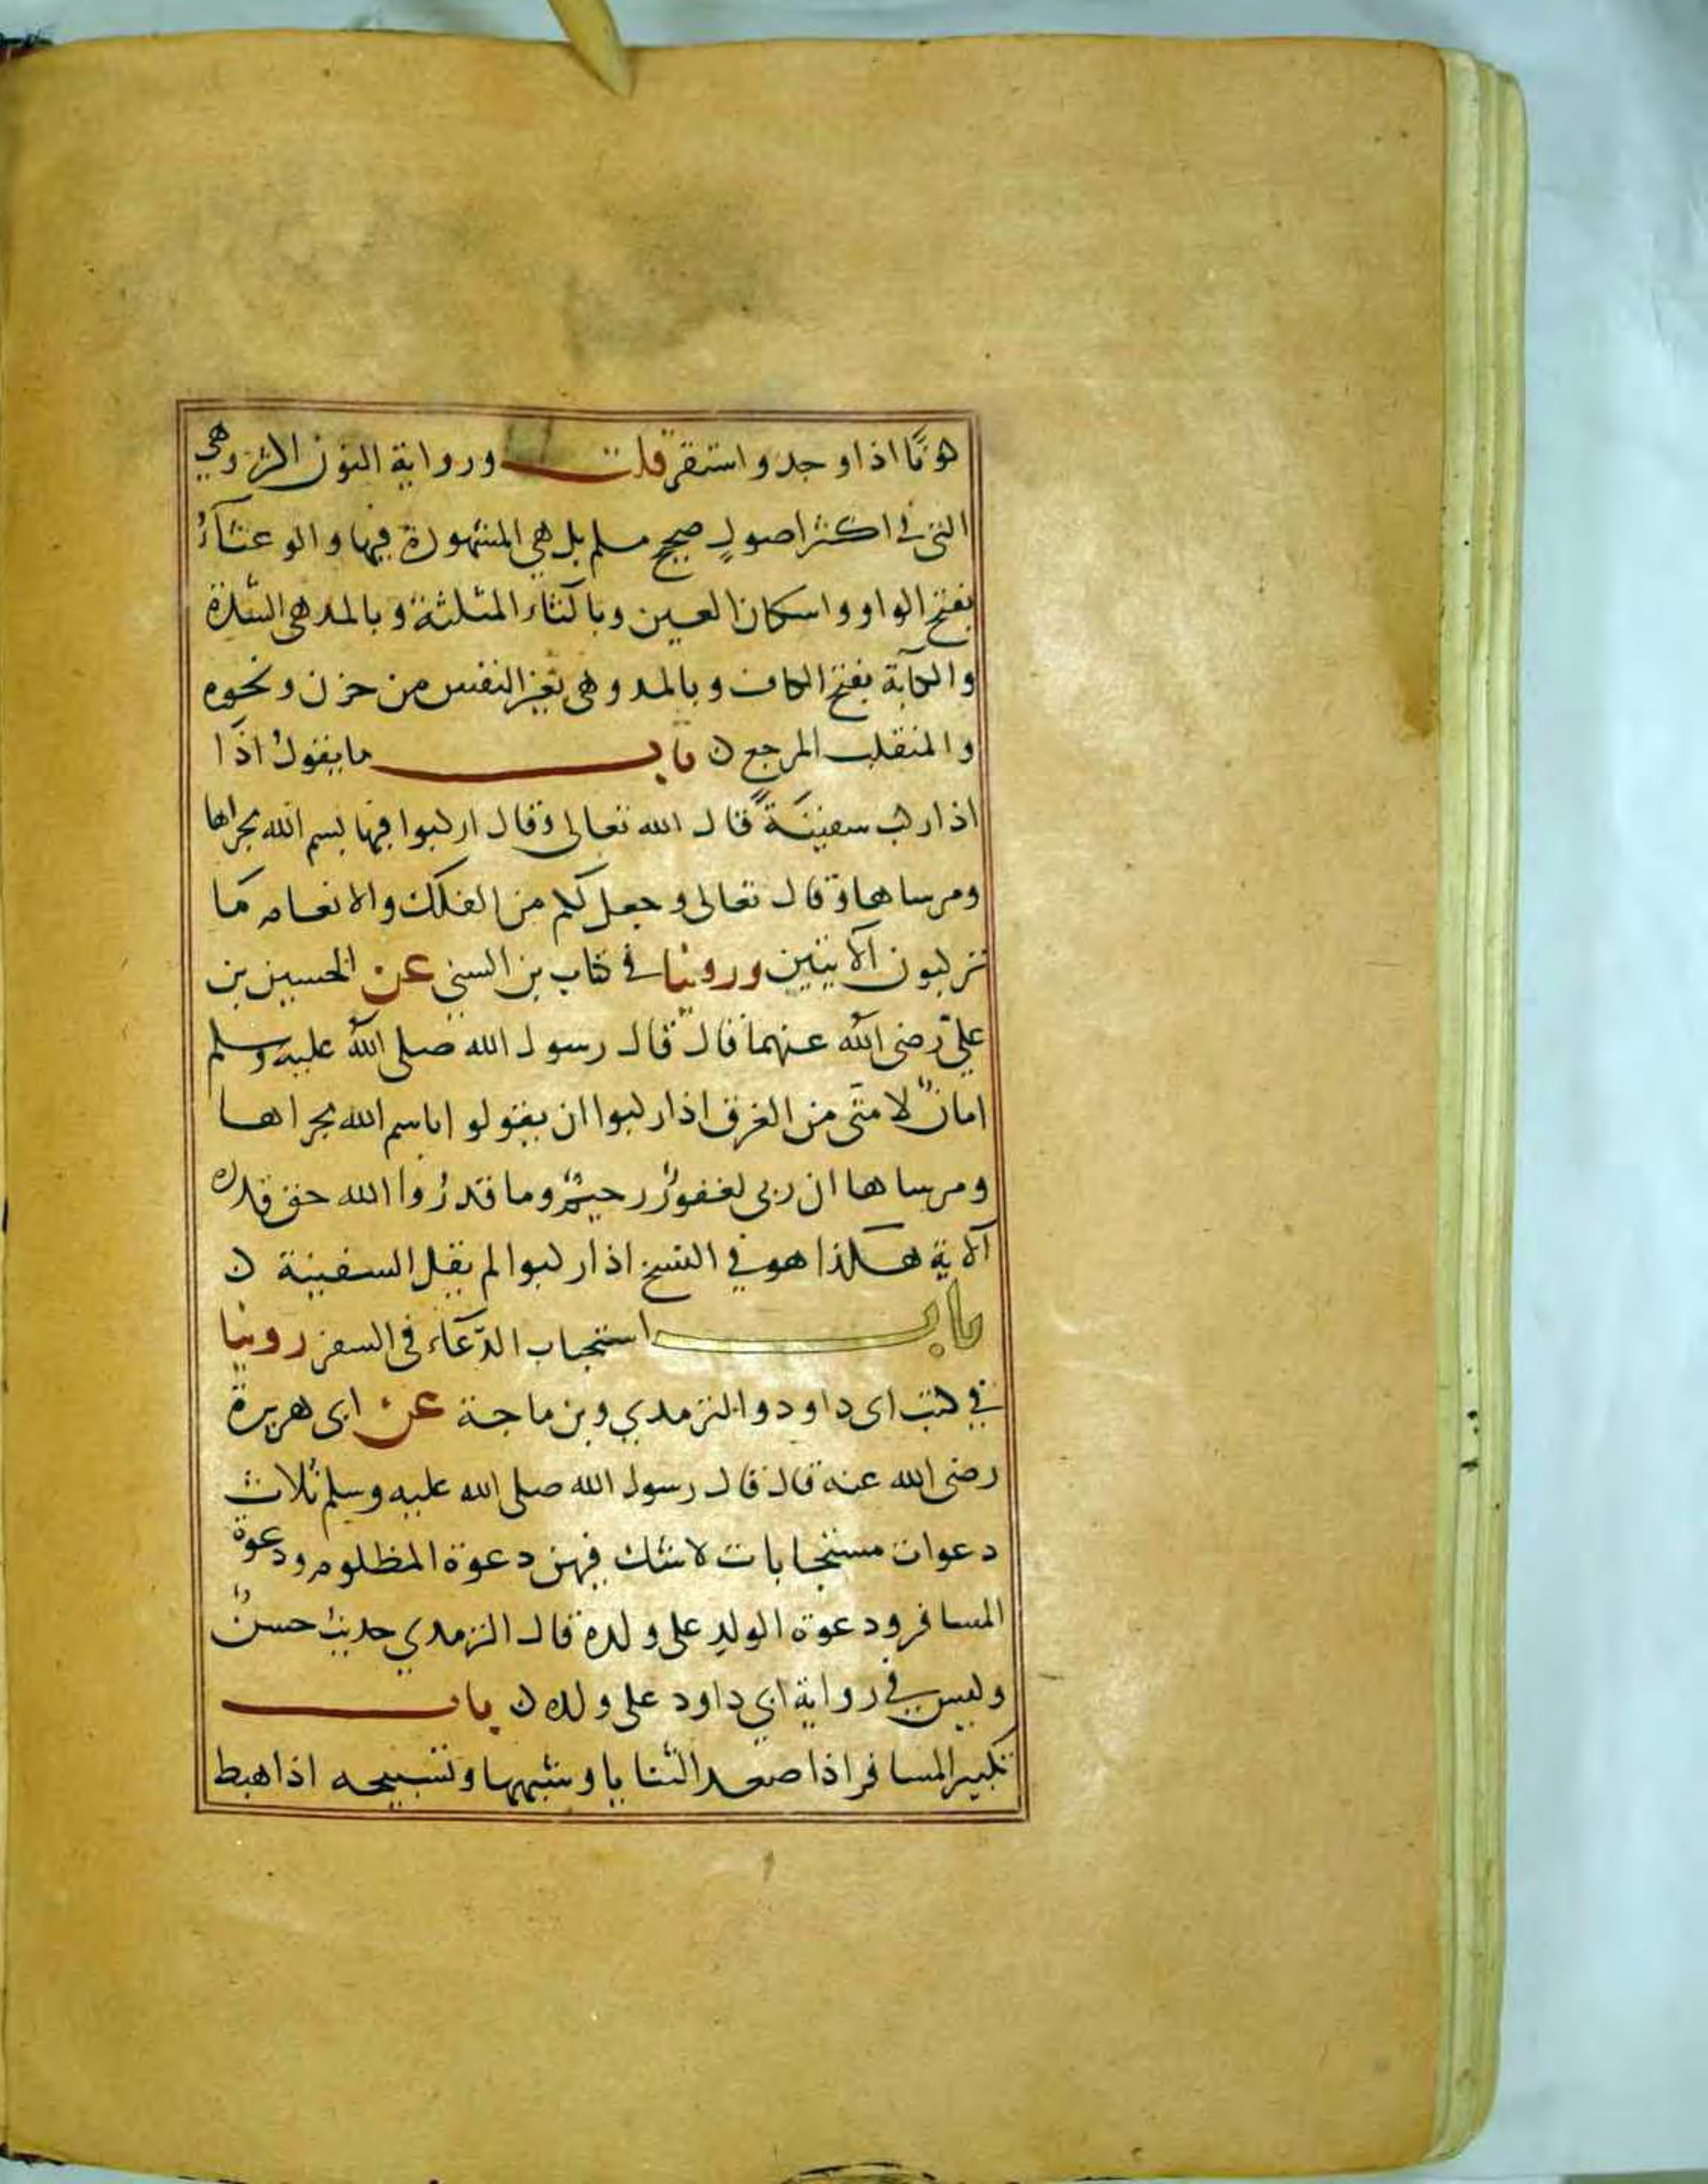 كونًا اذا وجد واستقر قلت ورواية النون اكثر وهي
التي في اكثر اصول صحيح مسلم بل هي المشهورة فيها والوعثآءُ
بفتح الواو واسكان العين وبالثاء المثلثة وبالمد هي الشدة
والكآبة بفتح الكاف وبالمد وهي تغير النفس من حزن ونحوه
والمنقلب المرجع ن باب ما يقول اذا
اذا ركب سفينةً قال الله تعالى وقال اركبوا فيها بسم الله مجراها
ومرساها وقال تعالى وجعل لكم من الفلك والانعام ما
تركبون الآيتين وروينا في كتاب بن السني عن الحسين بن
علي رضي الله عنهما قال قال رسول الله صلى الله عليه وسلم
امانٌ لامتي من الغرق اذا ركبوا ان يقولوا باسم الله مجراها
ومرساها ان ربي لغفورٌ رحيمٌ وما قدرُوا الله حق قدره
الآية هكذا هو في النسخ اذا ركبوا لم يقل السفينة ن
باب استجباب الدّعَآء في السفر روينا
في كتب ابي داود والترمدي وبن ماجة عن ابي هريرة
رضي الله عنه قال قال رسول الله صلى الله عليه وسلم ثلاث
دعوات مستجابات لا شك فيهن دعوة المظلوم ودعوة
المسافر ودعوة الولد على ولده قال الترمدي حديث حسنٌ
وليس في رواية ابي داود على ولده ن باب
تكبير المسافر اذا صعد الثنايا وشبهها وتسبيحه اذا هبط